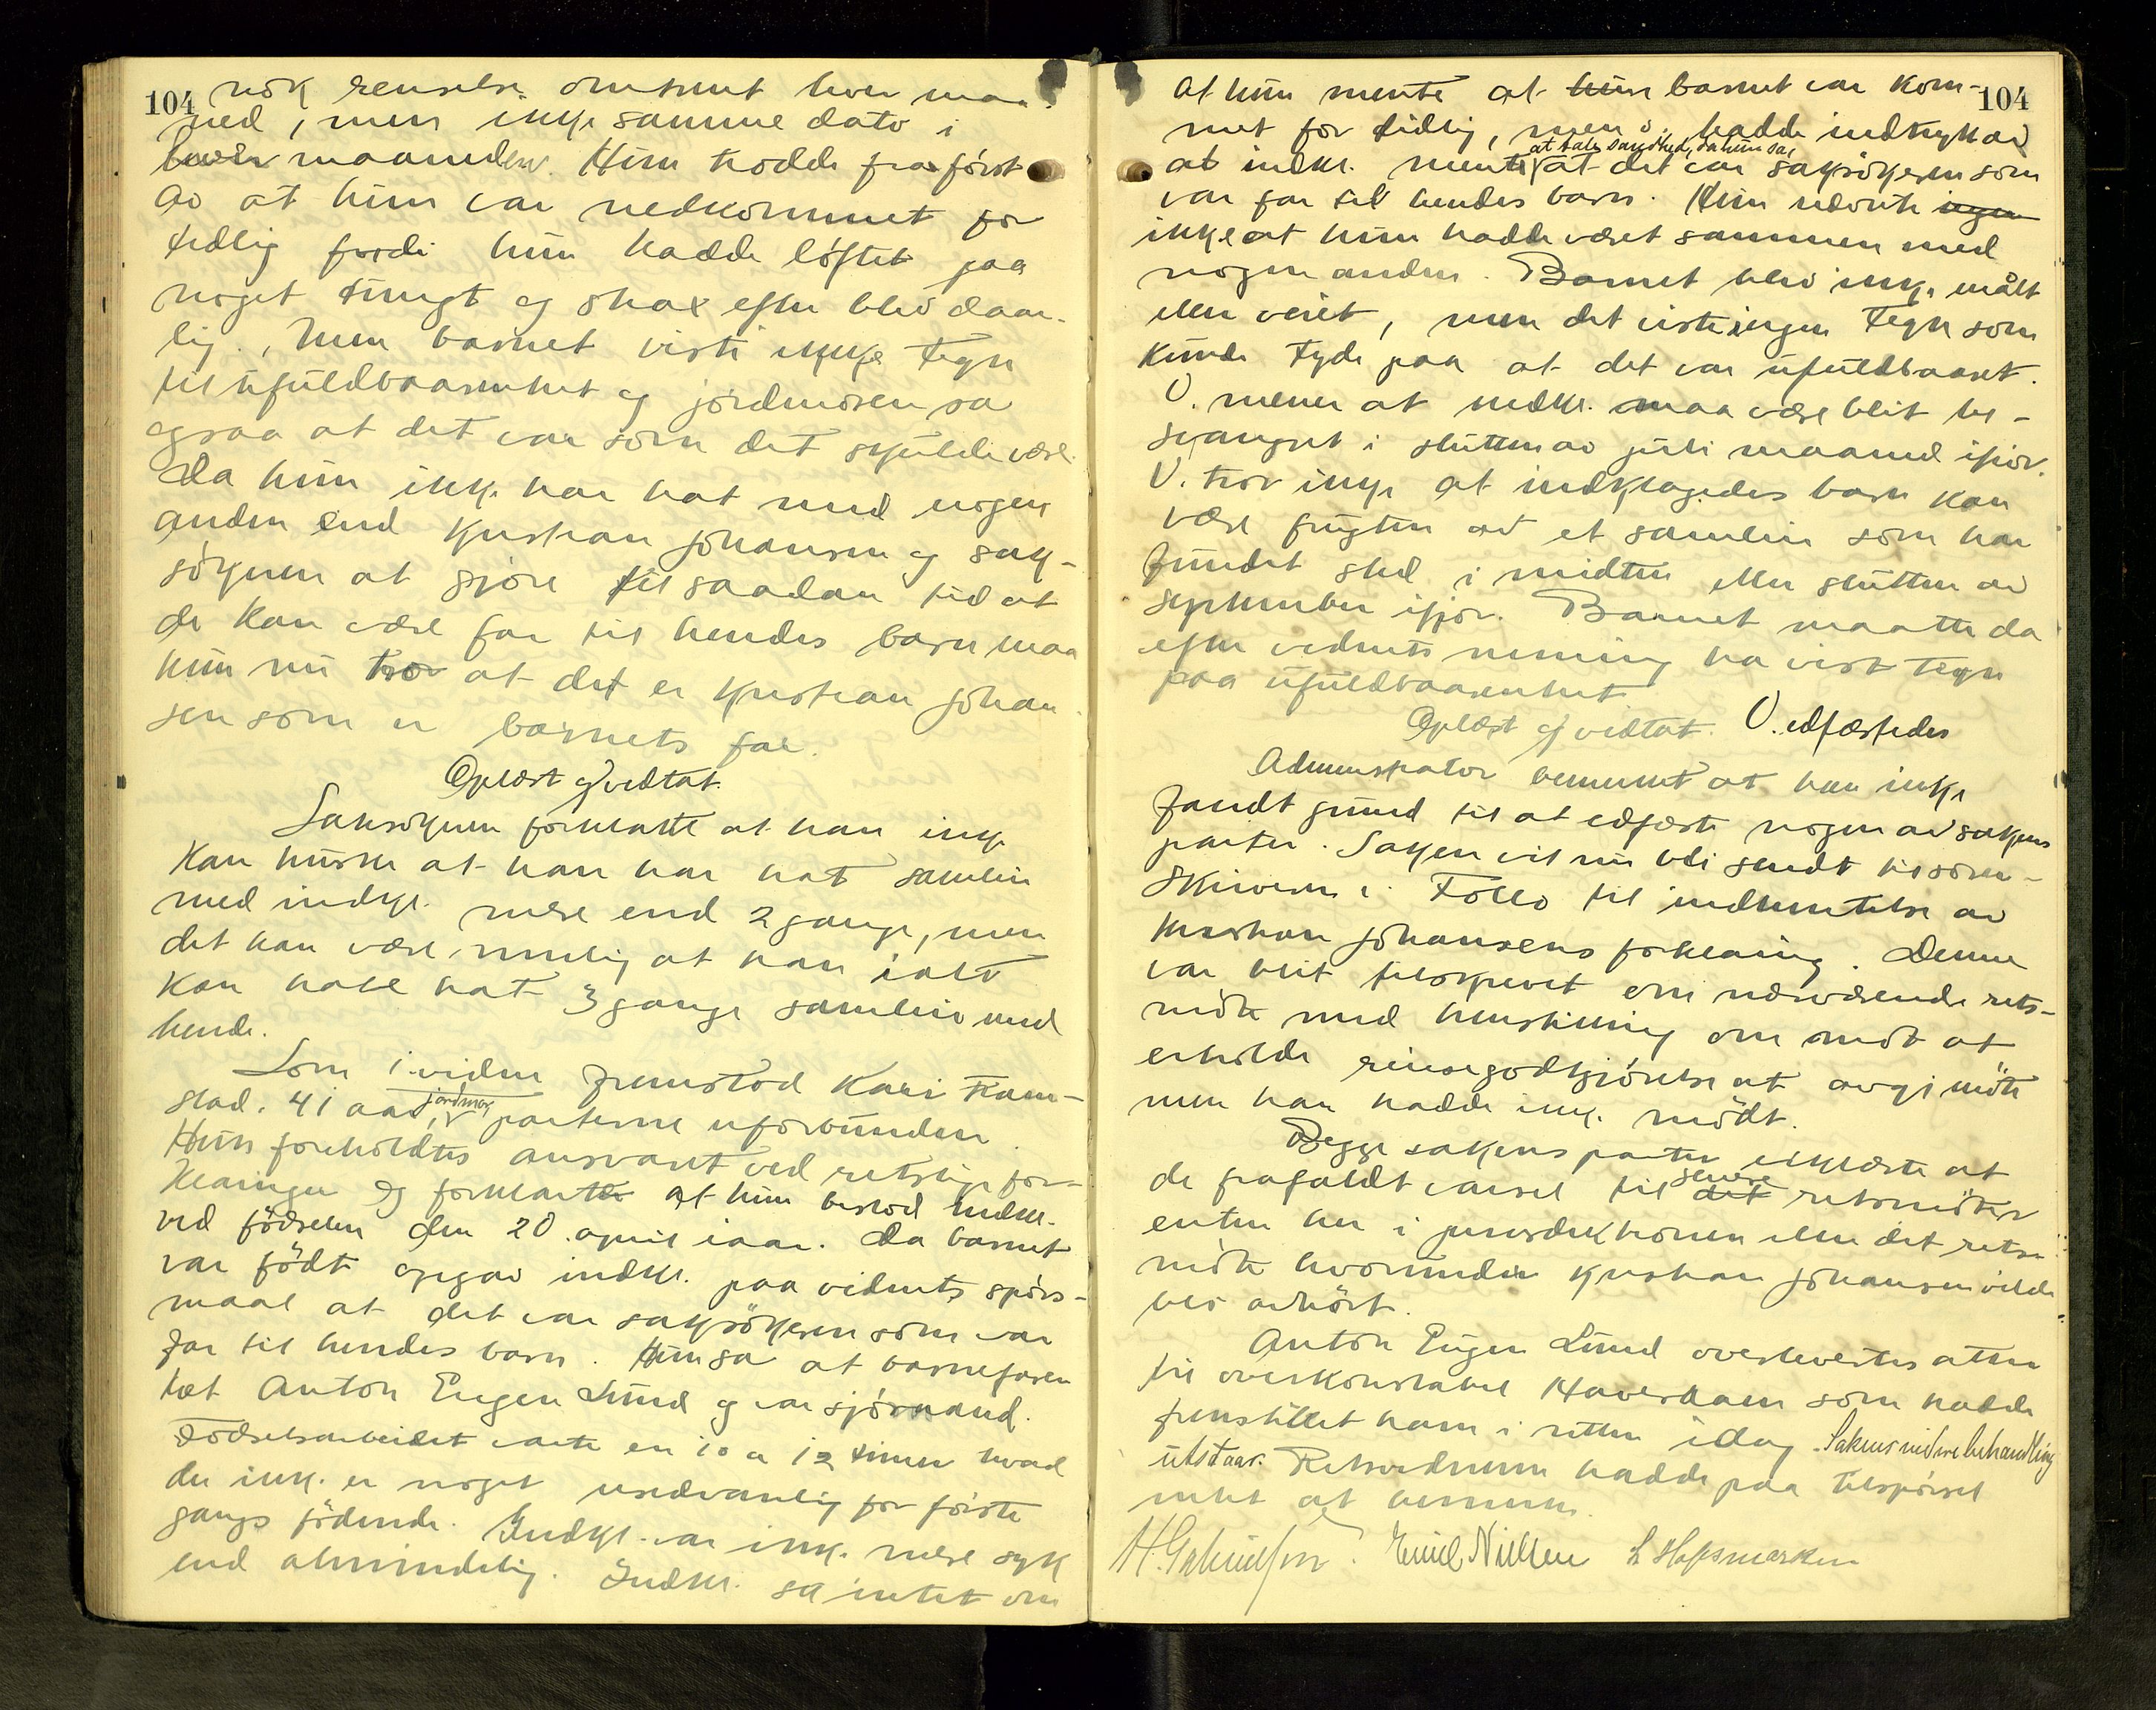 104
nok renselse omtrent hver maa-
ned, men ikke samme dato i
hver maaneden. Hun trodde fra först
av at hun var nedkommet for
tidlig fordi hun hadde löftet paa
noget tungt og strax efter blev daar-
lig, men barnet viste ikke tegn
til ufuldbaarenhet og jordmoren sa
ogsaa at det var som det skulde være.
Da hun ikke har hat med nogen
anden end Kristian Johansen og sak-
sökeren at gjöre til saadan tid at
de kan være far til hendes barn maa
hun nu tro at det er Kristian Johan-
sen som er barnets far.
Oplæst og vedtat.
Saksökeren forklarte at han ikke
kan huske at han har hat samleie
med indkl. mere end 2 gange, men
det kan være mulig at han ialt
kan have hat 3 gange samleie med
hende.
Som 1. vidne fremstod Kari Ram-
stad. 41 aar, jordmor, parterne uforbunden.
Hun foreholdtes ansvaret ved retslige for-
klaringer og forklarte at hun bistod indkl.
ved födselen den 20. april iaar. Da barnet
var födt opgav indkl. paa vidnets spörs-
maal at det var saksökeren som var
far til hendes barn. Hun sa at barnefaren
het Anton Eugen Lund og var sjömand.
Födselsarbeidet varte en 10 a 12 timer hvad
der ikke er noget usedvanlig for förste
gangs födende. Indkl. var ikke mere syk
end almindelig. Indkl. sa intet om
104
at hun mente at hun barnet var kom-
met for tidlig, men v. hadde indtryk av
at tale sandhed, da hun sa,
at indkl. mente at det var saksökeren som
var far til hendes barn. Hun nævnte ingen
ikke at hun hadde været sammen med
nogen anden. Barnet blev ikke målt
eller veiet, men det viste ingen tegn som
kunde tyde paa at det var ufuldbaaret.
V. mener at indkl. maa være blit be-
svangret i slutten av juli maaned ifjor.
V. tror ikke at indklagedes barn kan
være frugten av et samleie som har
fundet sted i midten eller slutten av
september ifjor. Barnet maatte da
efter vidnets mening ha vist tegn
paa ufuldbaarenhet
Oplæst og vedtat. V. edfæstedes
Administrator bemerket at han ikke
fandt grund til at edfæste nogen av sakens
parter. Saken vil nu bli sendt til soren-
skriveren i Follo til indhentelse av
Kristian Johansens forklaring. Denne
var blit tilskrevet om nærværende rets-
möte med henstilling om mot at
erholde reisegodtgjörelse at avgi möte
men han hadde ikke mödt.
Begge sakens parter erklærte at
de frafaldt varsel til det senere retsmöter
enten her i jurisdiktionen eller det rets-
möte hvorunder Kristian Johansen vilde
bli avhört.
Anton Eugen Lund overlevertes atter
til overkonstabel Haverdam som hadde
fremstillet ham i retten idag. Sakens videre behandling
utstaar. Retsvidnerne hadde paa tilspörsel
intet at bemerke.
Emil Nielsen